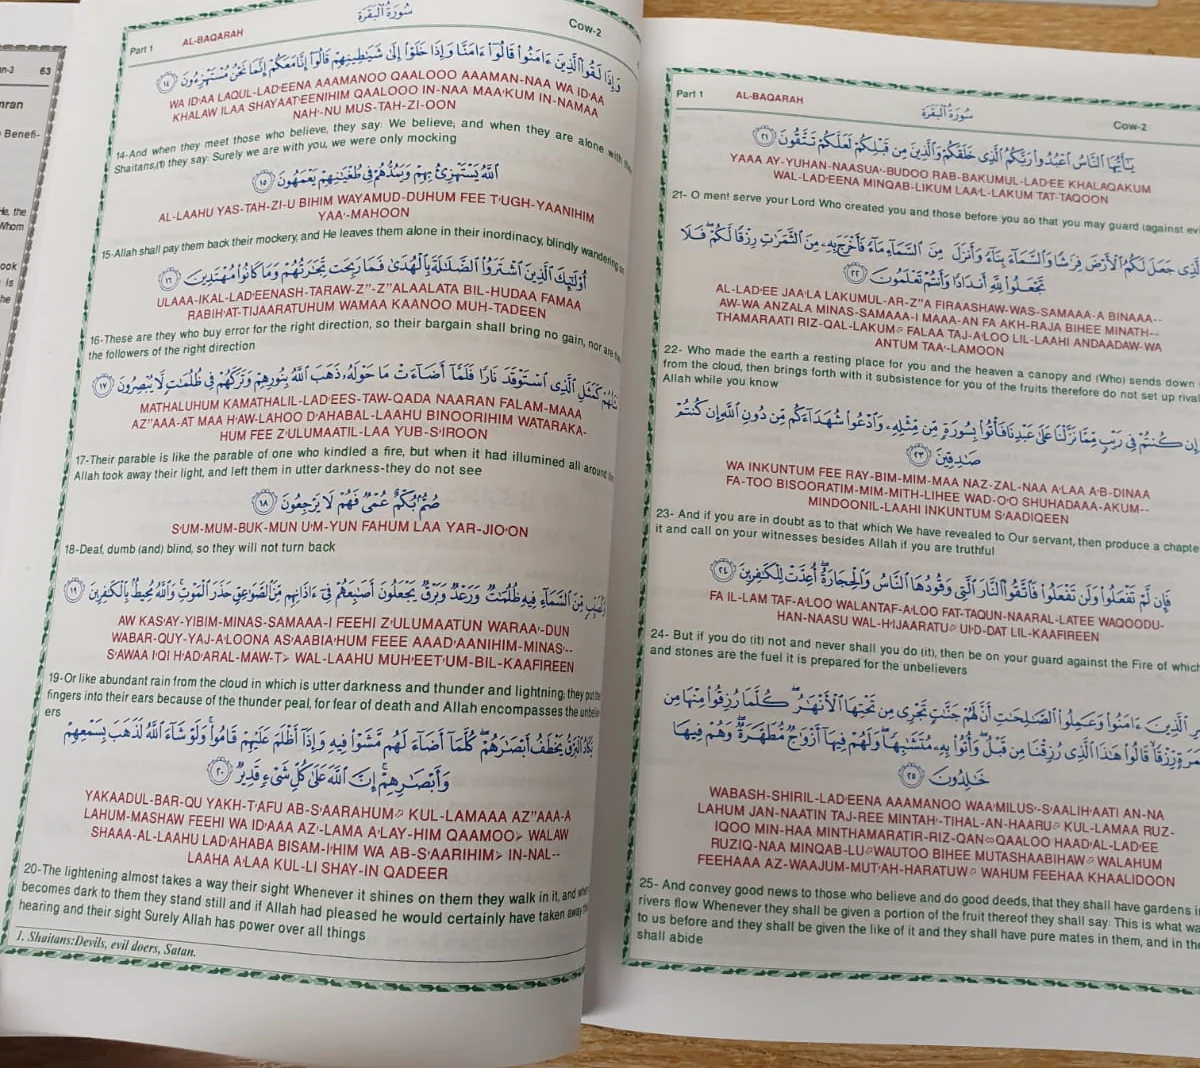 n-3 63
mran
Benefi-
He, the
Whom
ook
is
he
Part 1 AL-BAQARAH سُورَةُ الْبَقَرَةِ Cow-2
وَإِذَا لَقُوا الَّذِينَ ءَامَنُوا قَالُوا ءَامَنَّا وَإِذَا خَلَوْا إِلَىٰ شَيَاطِينِهِمْ قَالُوا إِنَّا مَعَكُمْ إِنَّمَا نَحْنُ مُسْتَهْزِءُونَ ١٤
WA ID'AA LAQUL-LAD'EENA AAAMANOO QAALOOO AAAMAN-NAA WA ID'AA
KHALAW ILAA SHAYAAT'EENIHIM QAALOOO IN-NAA MAA'KUM IN-NAMAA
NAH'-NU MUS-TAH-ZI-OON
14-And when they meet those who believe, they say: We believe; and when they are alone with
Shaitans,(1) they say: Surely we are with you, we were only mocking
اللَّهُ يَسْتَهْزِئُ بِهِمْ وَيَمُدُّهُمْ فِي طُغْيَانِهِمْ يَعْمَهُونَ ١٥
AL-LAAHU YAS-TAH-ZI-U BIHIM WAYAMUD-DUHUM FEE T'UGH-YAANIHIM
YAA'-MAHOON
15-Allah shall pay them back their mockery, and He leaves them alone in their inordinacy, blindly wandering
أُولَٰئِكَ الَّذِينَ اشْتَرَوُا الضَّلَالَةَ بِالْهُدَىٰ فَمَا رَبِحَت تِّجَارَتُهُمْ وَمَا كَانُوا مُهْتَدِينَ ١٦
ULAAA-IKAL-LAD'EENASH-TARAW-Z"-Z"ALAALATA BIL-HUDAA FAMAA
RABIH'AT-TIJAARATUHUM WAMAA KAANOO MUH-TADEEN
16-These are they who buy error for the right direction, so their bargain shall bring no gain, nor are
the followers of the right direction
مَثَلُهُمْ كَمَثَلِ الَّذِي اسْتَوْقَدَ نَارًا فَلَمَّا أَضَاءَتْ مَا حَوْلَهُ ذَهَبَ اللَّهُ بِنُورِهِمْ وَتَرَكَهُمْ فِي ظُلُمَاتٍ لَّا يُبْصِرُونَ ١٧
MATHALUHUM KAMATHALIL-LAD'EES-TAW-QADA NAARAN FALAM-MAAA
AZ"AAA-AT MAA H'AW-LAHOO D'AHABAL-LAAHU BINOORIHIM WATARAKA-
HUM FEE Z'ULUMAATIL-LAA YUB-S'IROON
17-Their parable is like the parable of one who kindled a fire, but when it had illumined all around
Allah took away their light, and left them in utter darkness-they do not see
صُمٌّ بُكْمٌ عُمْيٌ فَهُمْ لَا يَرْجِعُونَ ١٨
S'UM-MUM-BUK-MUN U'M-YUN FAHUM LAA YAR-JIO'ON
18-Deaf, dumb (and) blind, so they will not turn back
أَوْ كَصَيِّبٍ مِّنَ السَّمَاءِ فِيهِ ظُلُمَاتٌ وَرَعْدٌ وَبَرْقٌ يَجْعَلُونَ أَصَابِعَهُمْ فِي ءَاذَانِهِم مِّنَ الصَّوَاعِقِ حَذَرَ الْمَوْتِ وَاللَّهُ مُحِيطٌ بِالْكَافِرِينَ ١٩
AW KAS'AY-YIBIM-MINAS-SAMAAA-I FEEHI Z'ULUMAATUN WARAA'-DUN
WABAR-QUY-YAJ-A'LOONA AS'AABIA'HUM FEEE AAAD'AANIHIM-MINAS'-
S'AWAA I'QI H'AD'ARAL-MAW-T> WAL-LAAHU MUH'EET'UM-BIL-KAAFIREEN
19-Or like abundant rain from the cloud in which is utter darkness and thunder and lightning; they put
fingers into their ears because of the thunder peal, for fear of death and Allah encompasses the unbeliev
ers
يَكَادُ الْبَرْقُ يَخْطَفُ أَبْصَارَهُمْ كُلَّمَا أَضَاءَ لَهُم مَّشَوْا فِيهِ وَإِذَا أَظْلَمَ عَلَيْهِمْ قَامُوا وَلَوْ شَاءَ اللَّهُ لَذَهَبَ بِسَمْعِهِمْ
وَأَبْصَارِهِمْ إِنَّ اللَّهَ عَلَىٰ كُلِّ شَيْءٍ قَدِيرٌ ٢٠
YAKAADUL-BAR-QU YAKH-T'AFU AB-S'AARAHUM KUL-LAMAAA AZ"AAA-A
LAHUM-MASHAW FEEHI WA ID'AAA AZ'-LAMA A'LAY-HIM QAAMOO> WALAW
SHAAA-AL-LAAHU LAD'AHABA BISAM-I'HIM WA AB-S'AARIHIM> IN-NAL--
LAAHA A'LAA KUL-LI SHAY-IN QADEER
20-The lightening almost takes a way their sight Whenever it shines on them they walk in it, and when
becomes dark to them they stand still and if Allah had pleased he would certainly have taken away
hearing and their sight Surely Allah has power over all things
1. Shaitans:Devils, evil doers, Satan.
Part 1 AL-BAQARAH سُورَةُ الْبَقَرَةِ Cow-2
يَا أَيُّهَا النَّاسُ اعْبُدُوا رَبَّكُمُ الَّذِي خَلَقَكُمْ وَالَّذِينَ مِن قَبْلِكُمْ لَعَلَّكُمْ تَتَّقُونَ ٢١
YAAA AY-YUHAN-NAASUA'-BUDOO RAB-BAKUMUL-LAD'EE KHALAQAKUM
WAL-LAD'EENA MINQAB-LIKUM LAA'L-LAKUM TAT-TAQOON
21- O men! serve your Lord Who created you and those before you so that you may guard (against evi
الَّذِي جَعَلَ لَكُمُ الْأَرْضَ فِرَاشًا وَالسَّمَاءَ بِنَاءً وَأَنزَلَ مِنَ السَّمَاءِ مَاءً فَأَخْرَجَ بِهِ مِنَ الثَّمَرَاتِ رِزْقًا لَّكُمْ فَلَا
تَجْعَلُوا لِلَّهِ أَندَادًا وَأَنتُمْ تَعْلَمُونَ ٢٢
AL-LAD'EE JAA'LA LAKUMUL-AR-Z"A FIRAASHAW-WAS-SAMAAA-A BINAAA--
AW-WA ANZALA MINAS-SAMAAA-I MAAA-AN FA AKH-RAJA BIHEE MINATH--
THAMARAATI RIZ-QAL-LAKUM FALAA TAJ-A'LOO LIL-LAAHI ANDAADAW-WA
ANTUM TAA'-LAMOON
22- Who made the earth a resting place for you and the heaven a canopy and (Who) sends down
from the cloud, then brings forth with it subsistence for you of the fruits therefore do not set up rival
Allah while you know
وَإِن كُنتُمْ فِي رَيْبٍ مِّمَّا نَزَّلْنَا عَلَىٰ عَبْدِنَا فَأْتُوا بِسُورَةٍ مِّن مِّثْلِهِ وَادْعُوا شُهَدَاءَكُم مِّن دُونِ اللَّهِ إِن كُنتُمْ
صَادِقِينَ ٢٣
WA INKUNTUM FEE RAY-BIM-MIM-MAA NAZ-ZAL-NAA A'LAA A'B-DINAA
FA-TOO BISOORATIM-MIM-MITH-LIHEE WAD-O'O SHUHADAAA-AKUM--
MINDOONIL-LAAHI INKUNTUM S'AADIQEEN
23- And if you are in doubt as to that which We have revealed to Our servant, then produce a chapte
it and call on your witnesses besides Allah if you are truthful
فَإِن لَّمْ تَفْعَلُوا وَلَن تَفْعَلُوا فَاتَّقُوا النَّارَ الَّتِي وَقُودُهَا النَّاسُ وَالْحِجَارَةُ أُعِدَّتْ لِلْكَافِرِينَ ٢٤
FA IL-LAM TAF-A'LOO WALANTAF-A'LOO FAT-TAQUN-NAARAL-LATEE WAQOODU-
HAN-NAASU WAL-H'IJAARATU UI'D-DAT LIL-KAAFIREEN
24- But if you do (it) not and never shall you do (it), then be on your guard against the Fire of which
and stones are the fuel it is prepared for the unbelievers
وَبَشِّرِ الَّذِينَ ءَامَنُوا وَعَمِلُوا الصَّالِحَاتِ أَنَّ لَهُمْ جَنَّاتٍ تَجْرِي مِن تَحْتِهَا الْأَنْهَارُ كُلَّمَا رُزِقُوا مِنْهَا مِن
ثَمَرَةٍ رِّزْقًا قَالُوا هَٰذَا الَّذِي رُزِقْنَا مِن قَبْلُ وَأُتُوا بِهِ مُتَشَابِهًا وَلَهُمْ فِيهَا أَزْوَاجٌ مُّطَهَّرَةٌ وَهُمْ فِيهَا
خَالِدُونَ ٢٥
WABASH-SHIRIL-LAD'EENA AAAMANOO WAA'MILUS'-S'AALIH'AATI AN-NA
LAHUM JAN-NAATIN TAJ-REE MINTAH'-TIHAL-AN-HAARU KUL-LAMAA RUZ-
IQOO MIN-HAA MINTHAMARATIR-RIZ-QAN QAALOO HAAD'AL-LAD'EE
RUZIQ-NAA MINQAB-LU WAUTOO BIHEE MUTASHAABIHAW WALAHUM
FEEHAAA AZ-WAAJUM-MUT'AH-HARATUW WAHUM FEEHAA KHAALIDOON
25- And convey good news to those who believe and do good deeds, that they shall have gardens in
rivers flow Whenever they shall be given a portion of the fruit thereof they shall say: This is what wa
to us before and they shall be given the like of it and they shall have pure mates in them, and in the
shall abide